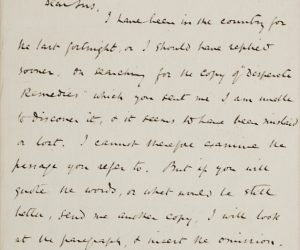 Dear Sirs,
I have been in the country for
the last fortnight, or I should have replied
sooner. On searching for the copy of "Desperate
Remedies" which you sent me I am unable
to discover it, & it seems to have been mislaid
or lost. I cannot therefore examine the
passage you refer to. But if you will
quote the words, or what would be still
better, send me another copy, I will look
at the paragraph, & insert the omission.